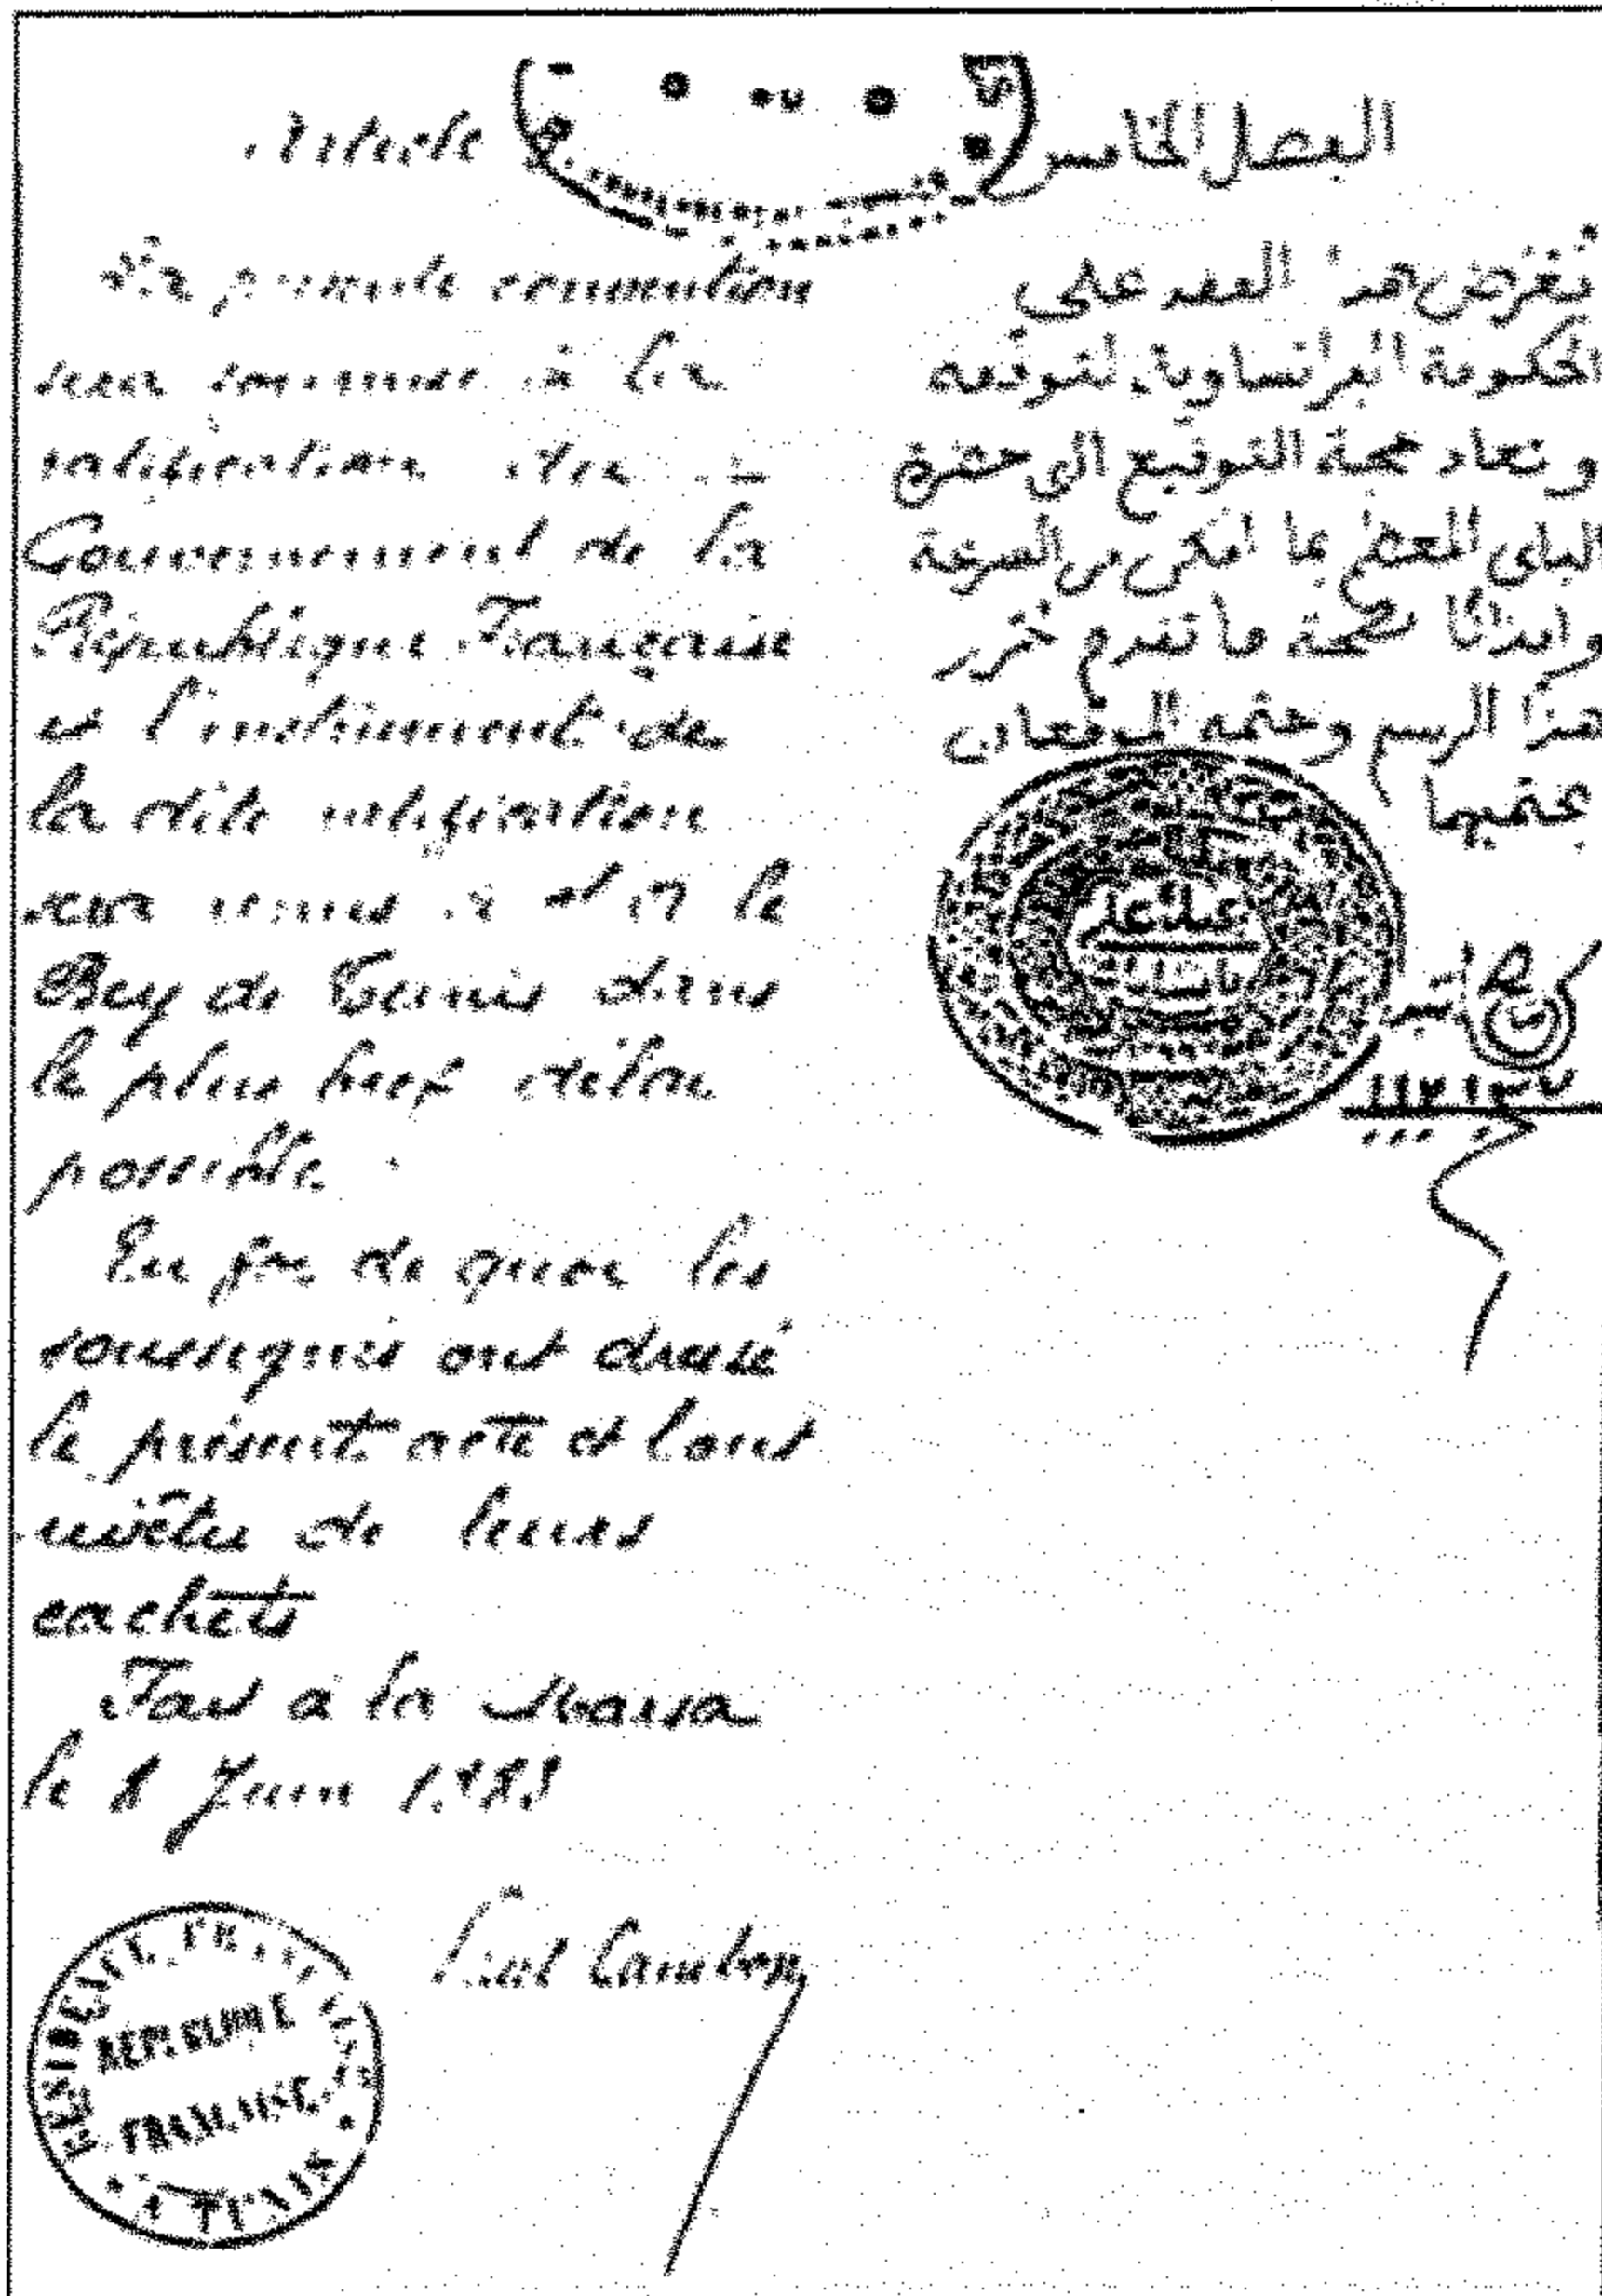 Article
La présente convention
sera soumise à la
ratification du
Gouvernement de la
République Française
et l'instrument de
la dite ratification
sera remis à S. A. le
Bey de Tunis dans
le plus bref délai
possible.
En foi de quoi les
soussignés ont dressé
le présent acte et l'ont
revêtu de leurs
cachets
Fait à la Marsa
le 8 Juin 1883
Paul Cambon
RÉSIDENCE FRANÇAISE
RÉPUBLIQUE
FRANÇAISE
A TUNIS
الفصل الخامس
تعرض هذا العقد على
الحكومة الفرانساوية لتوقعه
و تعاد حجة التوقيع الى حضرة
الباي المعظم بما امكن من السرعة
ما تقدم حرر
هذا الرسم وختمه الموقعان
علي